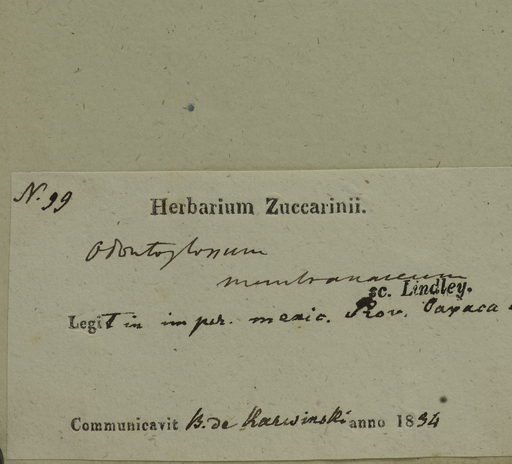 N. 99
Herbarium Zuccarinii.
Odontoglossum
membranaceum
sc. Lindley.
Legit in imper. mexic. Prov. Oaxaca
Communicavit B. de Karwinski anno 1834